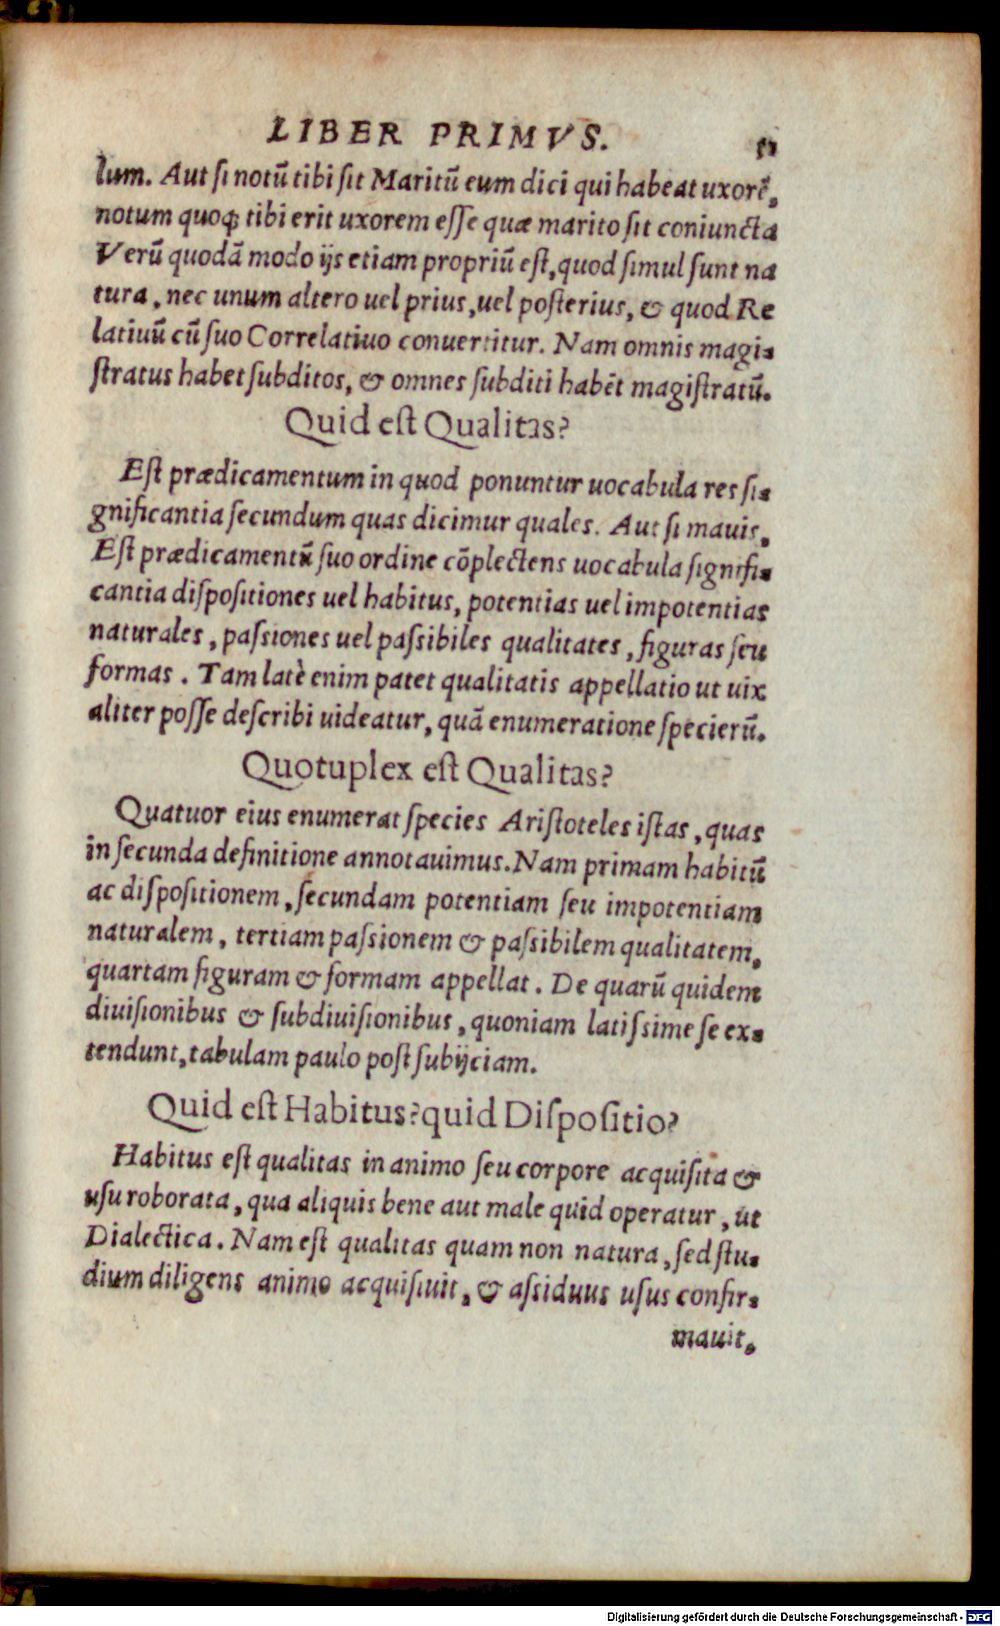 LIBER PRIMVS.
lum. Aut si notũ tibi sit Maritũ eum dici qui habeat uxorẽ,
notum quoq; tibi erit uxorem esse quæ marito sit coniuncta
Verũ quodã modo ijs etiam propriũ est, quod simul sunt na
tura, nec unum altero uel prius, uel posterius, & quod Re
latiuũ cũ suo Correlatiuo conuertitur. Nam omnis magi-
stratus habet subditos, & omnes subditi habẽt magistratũ.
Quid est Qualitas?
Est prædicamentum in quod ponuntur uocabula res si-
gnificantia secundum quas dicimur quales. Aut si mauis,
Est prædicamentũ suo ordine cõplectens uocabula signifi-
cantia dispositiones uel habitus, potentias uel impotentias
naturales, passiones uel passibiles qualitates, figuras seu
formas. Tam latè enim patet qualitatis appellatio ut uix
aliter posse describi uideatur, quã enumeratione specierũ.
Quotuplex est Qualitas?
Quatuor eius enumerat species Aristoteles istas, quas
in secunda definitione annotauimus. Nam primam habitũ
ac dispositionem, secundam potentiam seu impotentiam
naturalem, tertiam passionem & passibilem qualitatem,
quartam figuram & formam appellat. De quarũ quidem
diuisionibus & subdiuisionibus, quoniam latissime se ex-
tendunt, tabulam paulo post subijciam.
Quid est Habitus? quid Dispositio?
Habitus est qualitas in animo seu corpore acquisita &
usu roborata, qua aliquis bene aut male quid operatur, ut
Dialectica. Nam est qualitas quam non natura, sed stu-
dium diligens animo acquisiuit, & assiduus usus confir-
mauit,
Digitalisierung gefördert durch die Deutsche Forschungsgemeinschaft - DFG